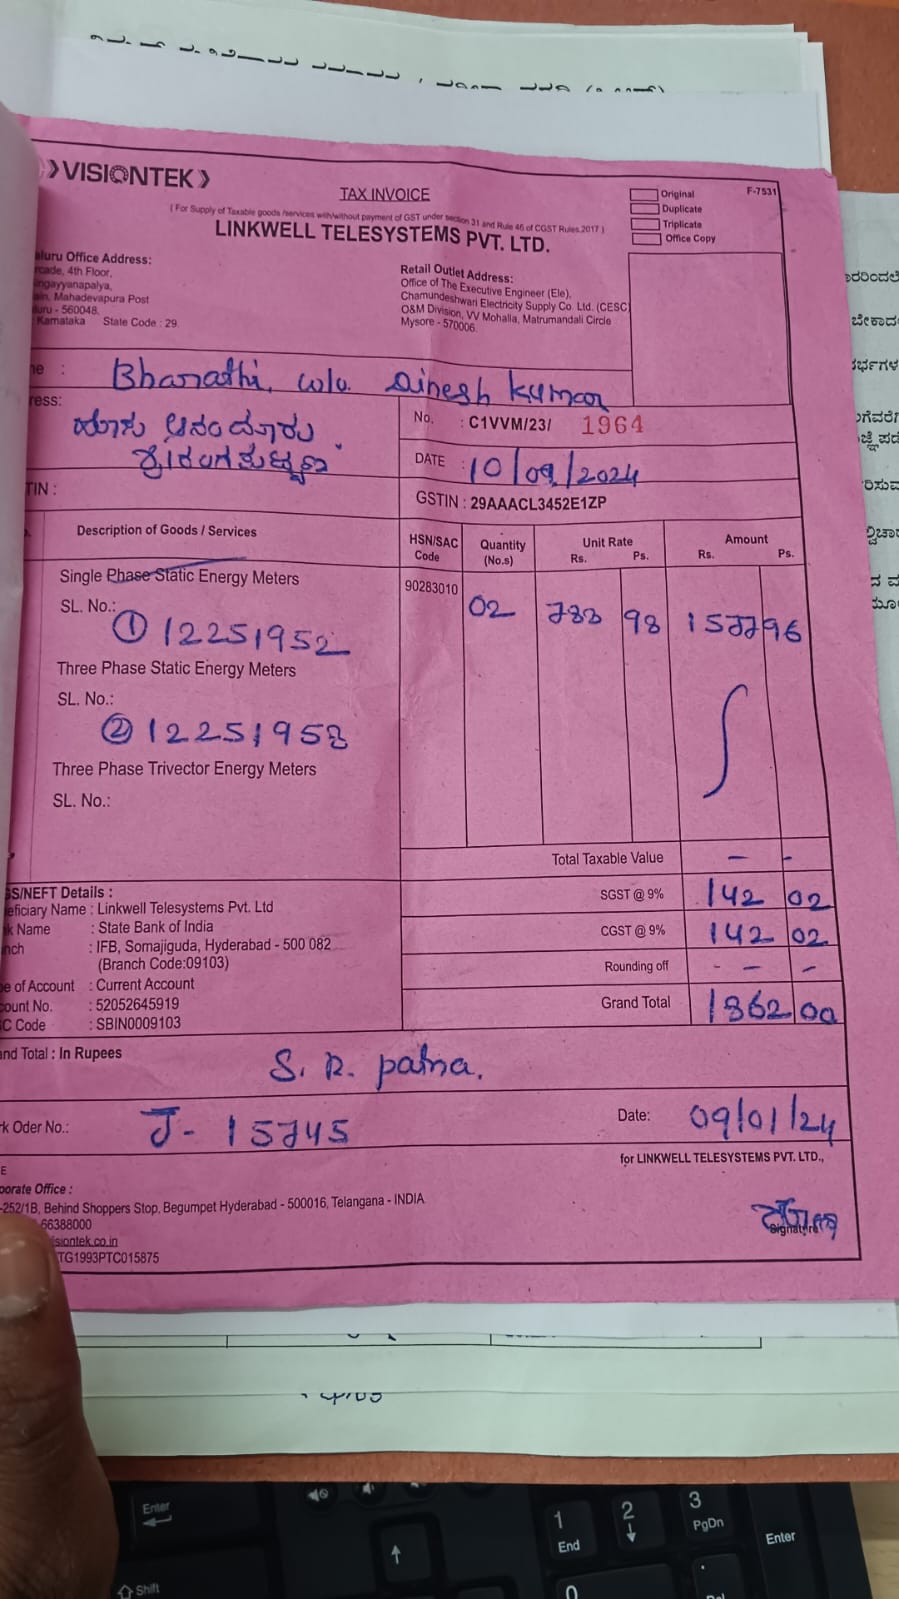 VISIONTEK
TAX INVOICE
( For Supply of Taxable goods /services with/without payment of GST under section 31 and Rule 46 of CGST Rules,2017 )
LINKWELL TELESYSTEMS PVT. LTD.
Original
Duplicate
Triplicate
Office Copy
F-7531
aluru Office Address:
rcade, 4th Floor,
ngayyanapalya,
ain, Mahadevapura Post
luru - 560048.
Karnataka State Code : 29.
Retail Outlet Address:
Office of The Executive Engineer (Ele),
Chamundeshwari Electricity Supply Co. Ltd. (CESC)
O&M Division, VV Mohalla, Matrumandali Circle
Mysore - 570006.
ne : Bharathi, w/o. Dinesh Kumar
ress:
No. : C1VVM/23/ 1964
DATE : 10/09/2024
TIN :
GSTIN : 29AAACL3452E1ZP
Description of Goods / Services
HSN/SAC Code
Quantity (No.s)
Unit Rate Rs. Ps.
Amount Rs. Ps.
Single Phase Static Energy Meters
90283010
02 788 98 1577 96
SL. No.:
① 12251952
Three Phase Static Energy Meters
SL. No.:
② 12251958
Three Phase Trivector Energy Meters
SL. No.:
Total Taxable Value - -
SGST @ 9% 142 02
CGST @ 9% 142 02
Rounding off - - -
Grand Total 1862 00
GS/NEFT Details :
eficiary Name : Linkwell Telesystems Pvt. Ltd
k Name : State Bank of India
nch : IFB, Somajiguda, Hyderabad - 500 082
(Branch Code:09103)
e of Account : Current Account
ount No. : 52052645919
C Code : SBIN0009103
and Total : In Rupees
S. R. patna.
rk Oder No.: J - 15745
Date: 09/01/24
for LINKWELL TELESYSTEMS PVT. LTD.,
porate Office :
-252/1B, Behind Shoppers Stop, Begumpet Hyderabad - 500016, Telangana - INDIA
66388000
isiontek.co.in
TG1993PTC015875
Signature
Enter
Shift
1
End
2
3
PgDn
Enter
0